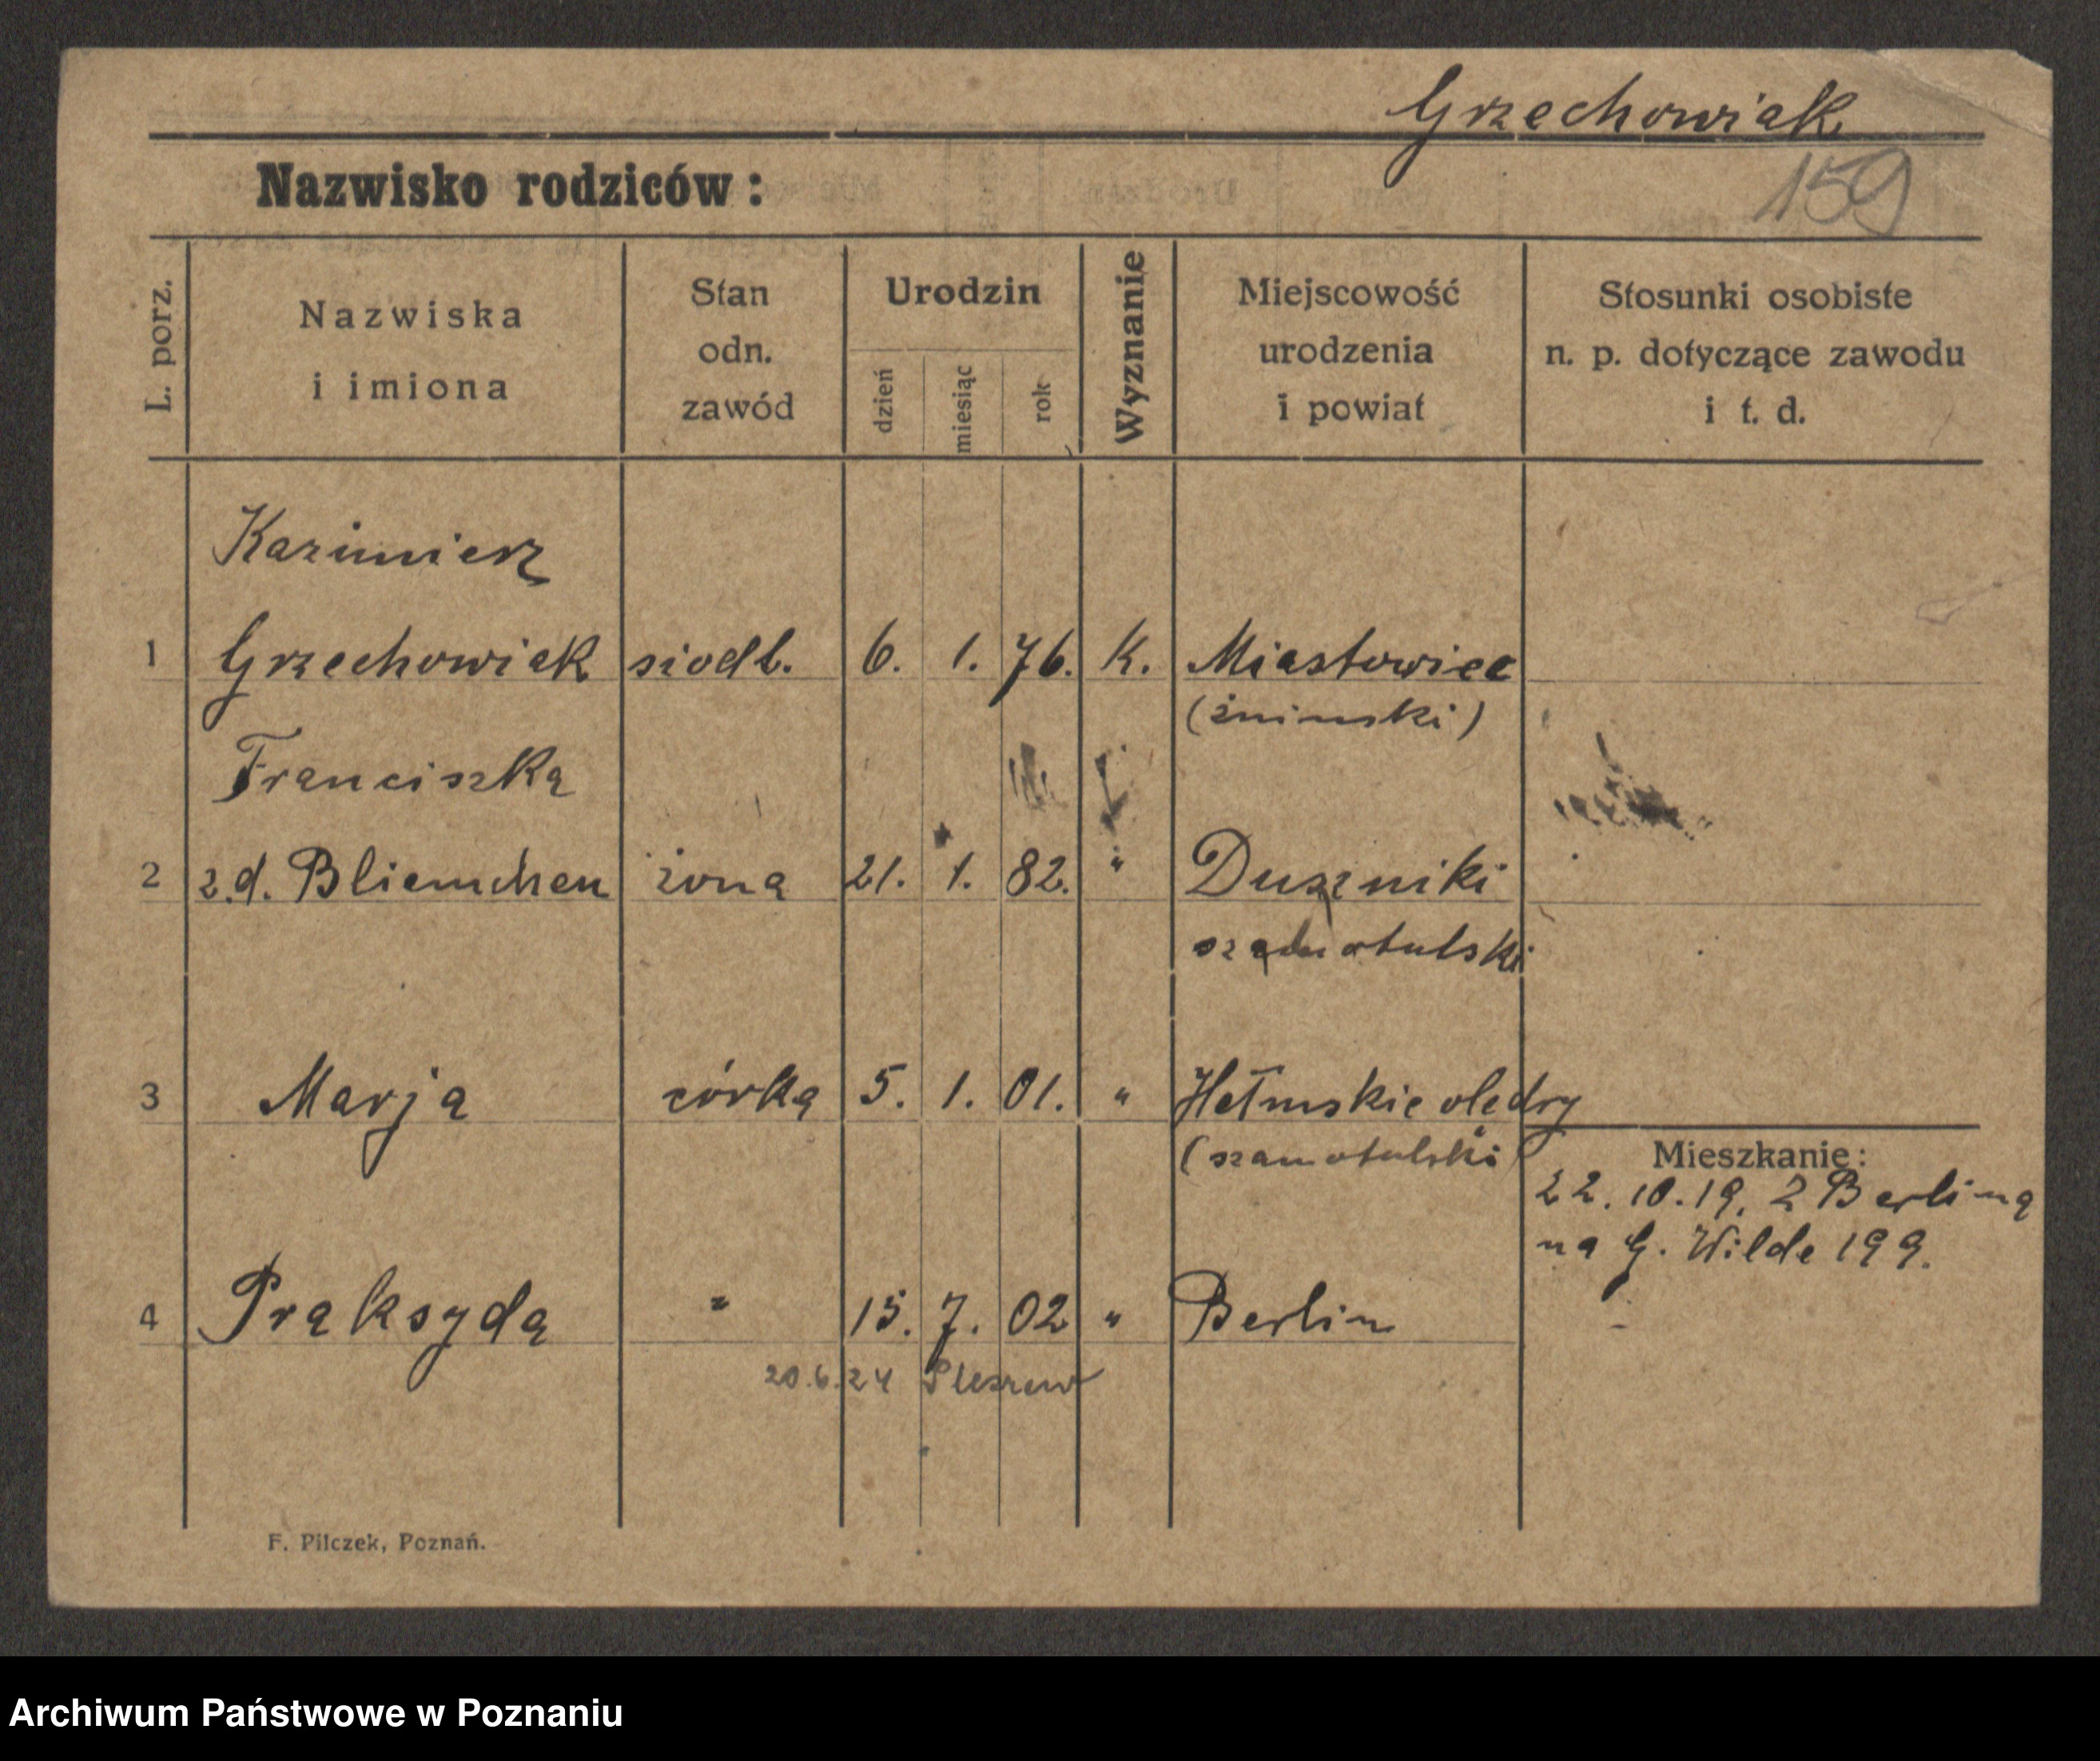 Grzechowiak
159
Nazwisko rodziców:
L. porz.
Nazwiska
i imiona
Stan
odn.
zawód
Urodzin
dzień
miesiąc
rok
Wyznanie
Miejscowość
urodzenia
i powiat
Stosunki osobiste
n. p. dotyczące zawodu
i t. d.
Kazimierz
1 Grzechowiak siodł. 6. 1. 76. K. Miastowice
(żniński)
Franciszka
2 z.d. Bliemchen żona 21. 1. 82. " Duszniki
szamotulski
3 Marja córka 5. 1. 01. " Hełmskie olędry
(szamotulski)
Mieszkanie:
22. 10. 19. z Berlina
na G. Wilde 199.
4 Praksyda " 15. 7. 02 " Berlin
20.6.24 Pleszew
F. Pilczek, Poznań.
Archiwum Państwowe w Poznaniu